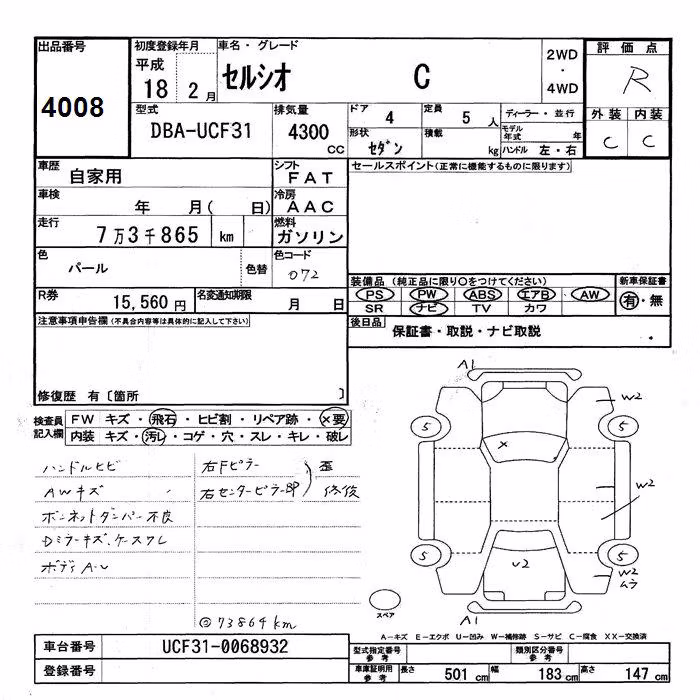 出品番号
4008
初度登録年月
平成
18 2月
車名・グレード
セルシオ C
2WD
・
4WD
評価点
R
外装 内装
C C
型式
DBA-UCF31
排気量
4300
cc
ドア 4
定員 5 人
ディーラー・並行
形状 セダン
積載 kg
モデル年式 年
ハンドル 左・右
車歴
自家用
シフト
FAT
セールスポイント(正常に機能するものに限ります)
車検
年 月( 日)
冷房
AAC
走行
7万3千865 km
燃料
ガソリン
色
パール 色替
色コード
072
装備品(純正品に限り○をつけてください)
新車保証書
PS PW ABS エアB AW
有・無
SR ナビ TV カワ
R券
15,560 円
名変通知期限
月 日
後日品
保証書・取説・ナビ取説
注意事項申告欄(不具合内容等は具体的に記入して下さい)
修復歴 有〔箇所 〕
検査員
記入欄
FW キズ・飛石・ヒビ割・リペア跡・×要
内装 キズ・汚レ・コゲ・穴・スレ・キレ・破レ
ハンドルヒビ
AWキズ
ボンネットダンパー不良
Dミラーキズ、ケースワレ
ボディA-U
右Fピラー
右センターピラーBP
歪
修復
◎73864km
A1
W2
5
5
×
W2
5
5
U2
W2
ムラ
スペア
A1
A-キズ E-エクボ U-凹み W-補修跡 S-サビ C-腐食 XX-交換済
車台番号
UCF31-0068932
登録番号
型式指定番号
参考
類別区分番号
参考
車庫証明用
参考
長さ 501 cm
幅 183 cm
高さ 147 cm